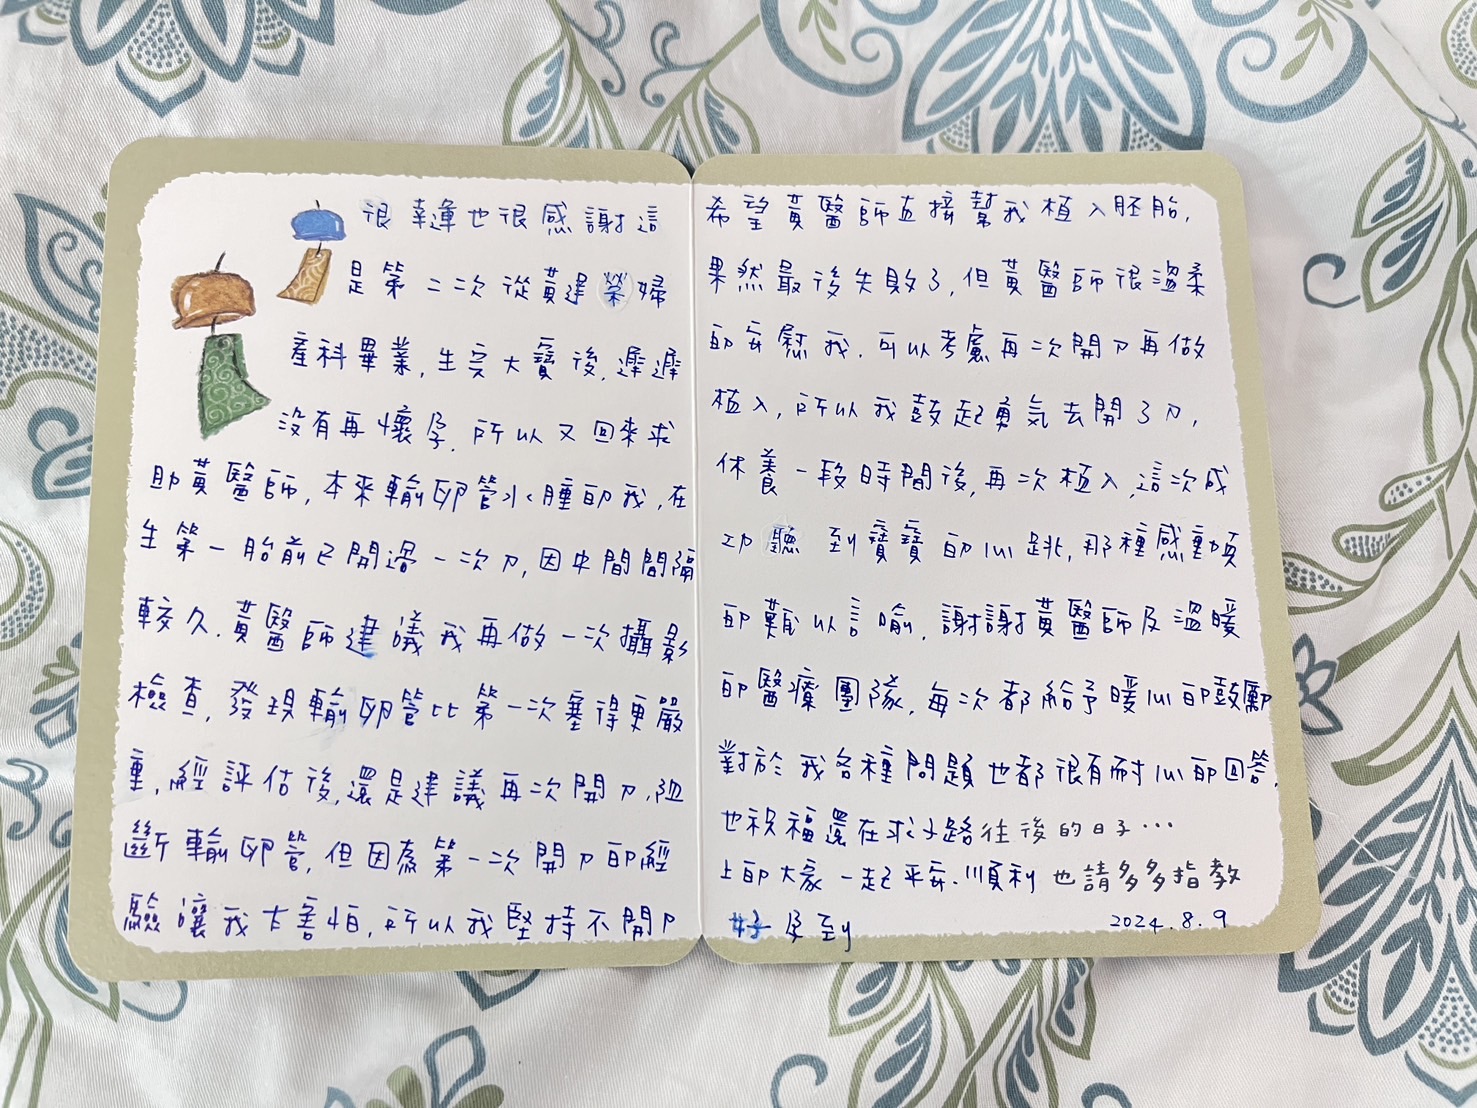 很幸運也很感謝這
是第二次從黃建榮婦
產科畢業,生完大寶後,遲遲
沒有再懷孕.所以又回來求
助黃醫師,本來輸卵管水腫的我,在
生第一胎前已開過一次刀,因中間間隔
較久.黃醫師建議我再做一次攝影
檢查,發現輸卵管比第一次塞得更嚴
重,經評估後,還是建議再次開刀,阻
斷輸卵管,但因為第一次開刀的經
驗讓我太害怕,所以我堅持不開刀
希望黃醫師直接幫我植入胚胎,
果然最後失敗了,但黃醫師很溫柔
的安慰我.可以考慮再次開刀再做
植入,所以我鼓起勇氣去開了刀,
休養一段時間後,再次植入,這次成
功聽到寶寶的心跳,那種感動真
的難以言喻,謝謝黃醫師及溫暖
的醫療團隊,每次都給予暖心的鼓勵
對於我各種問題也都很有耐心的回答,
也祝福還在求子路往後的日子…
上的大家一起平安.順利 也請多多指教
好孕到 2024.8.9